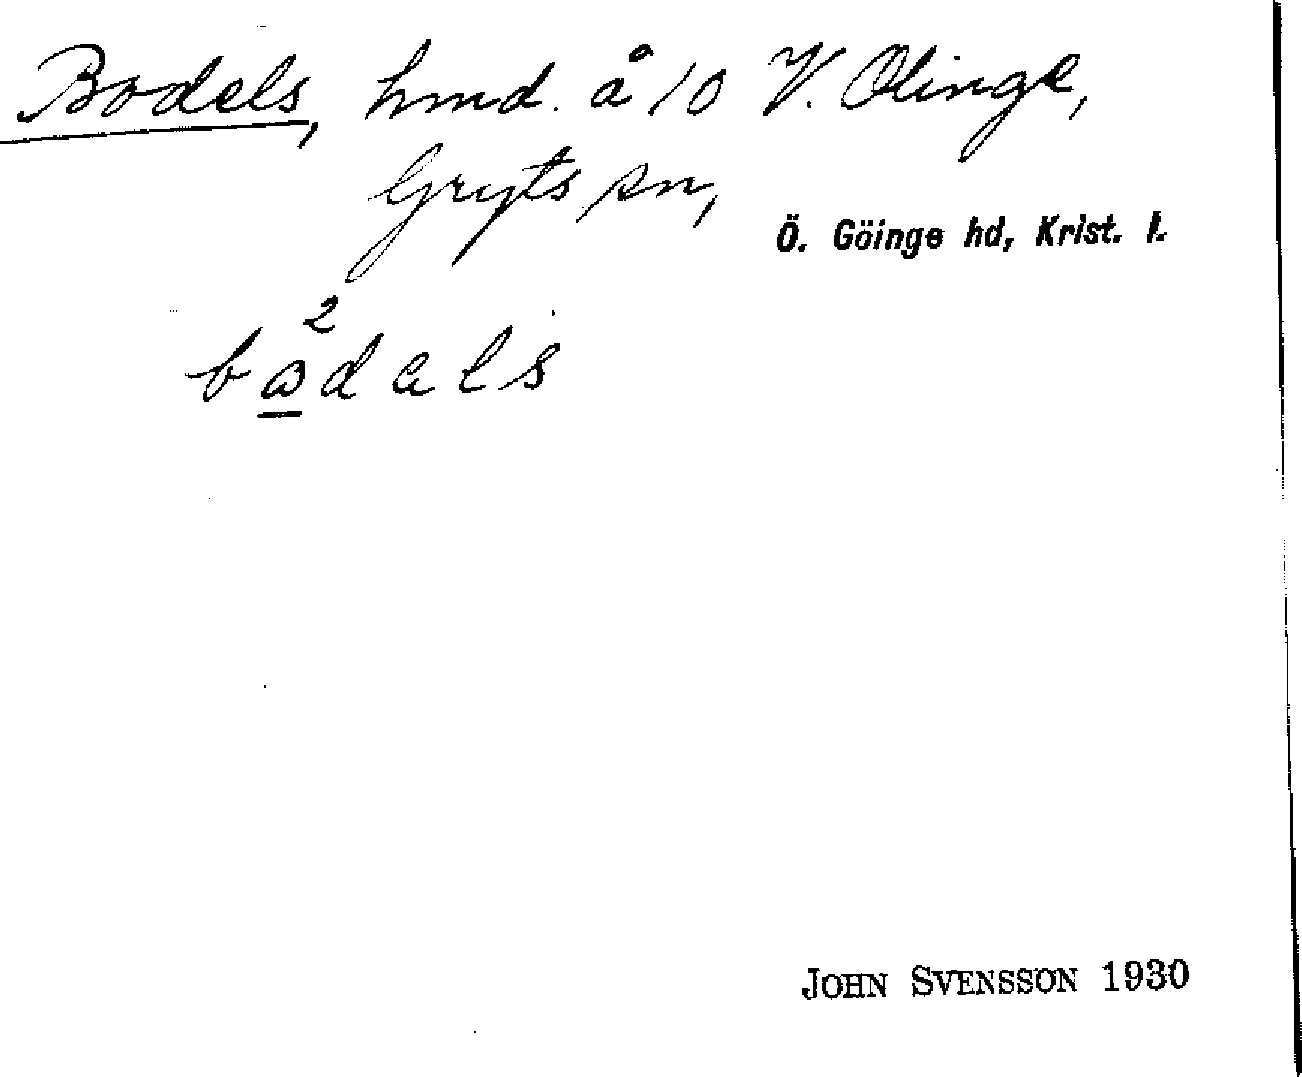 Bodels, hmd. å 10 V. Olinge,
Gryts sn,
Ö. Göinge hd, Krist. l.
2
bωdals
JOHN SVENSSON 1930